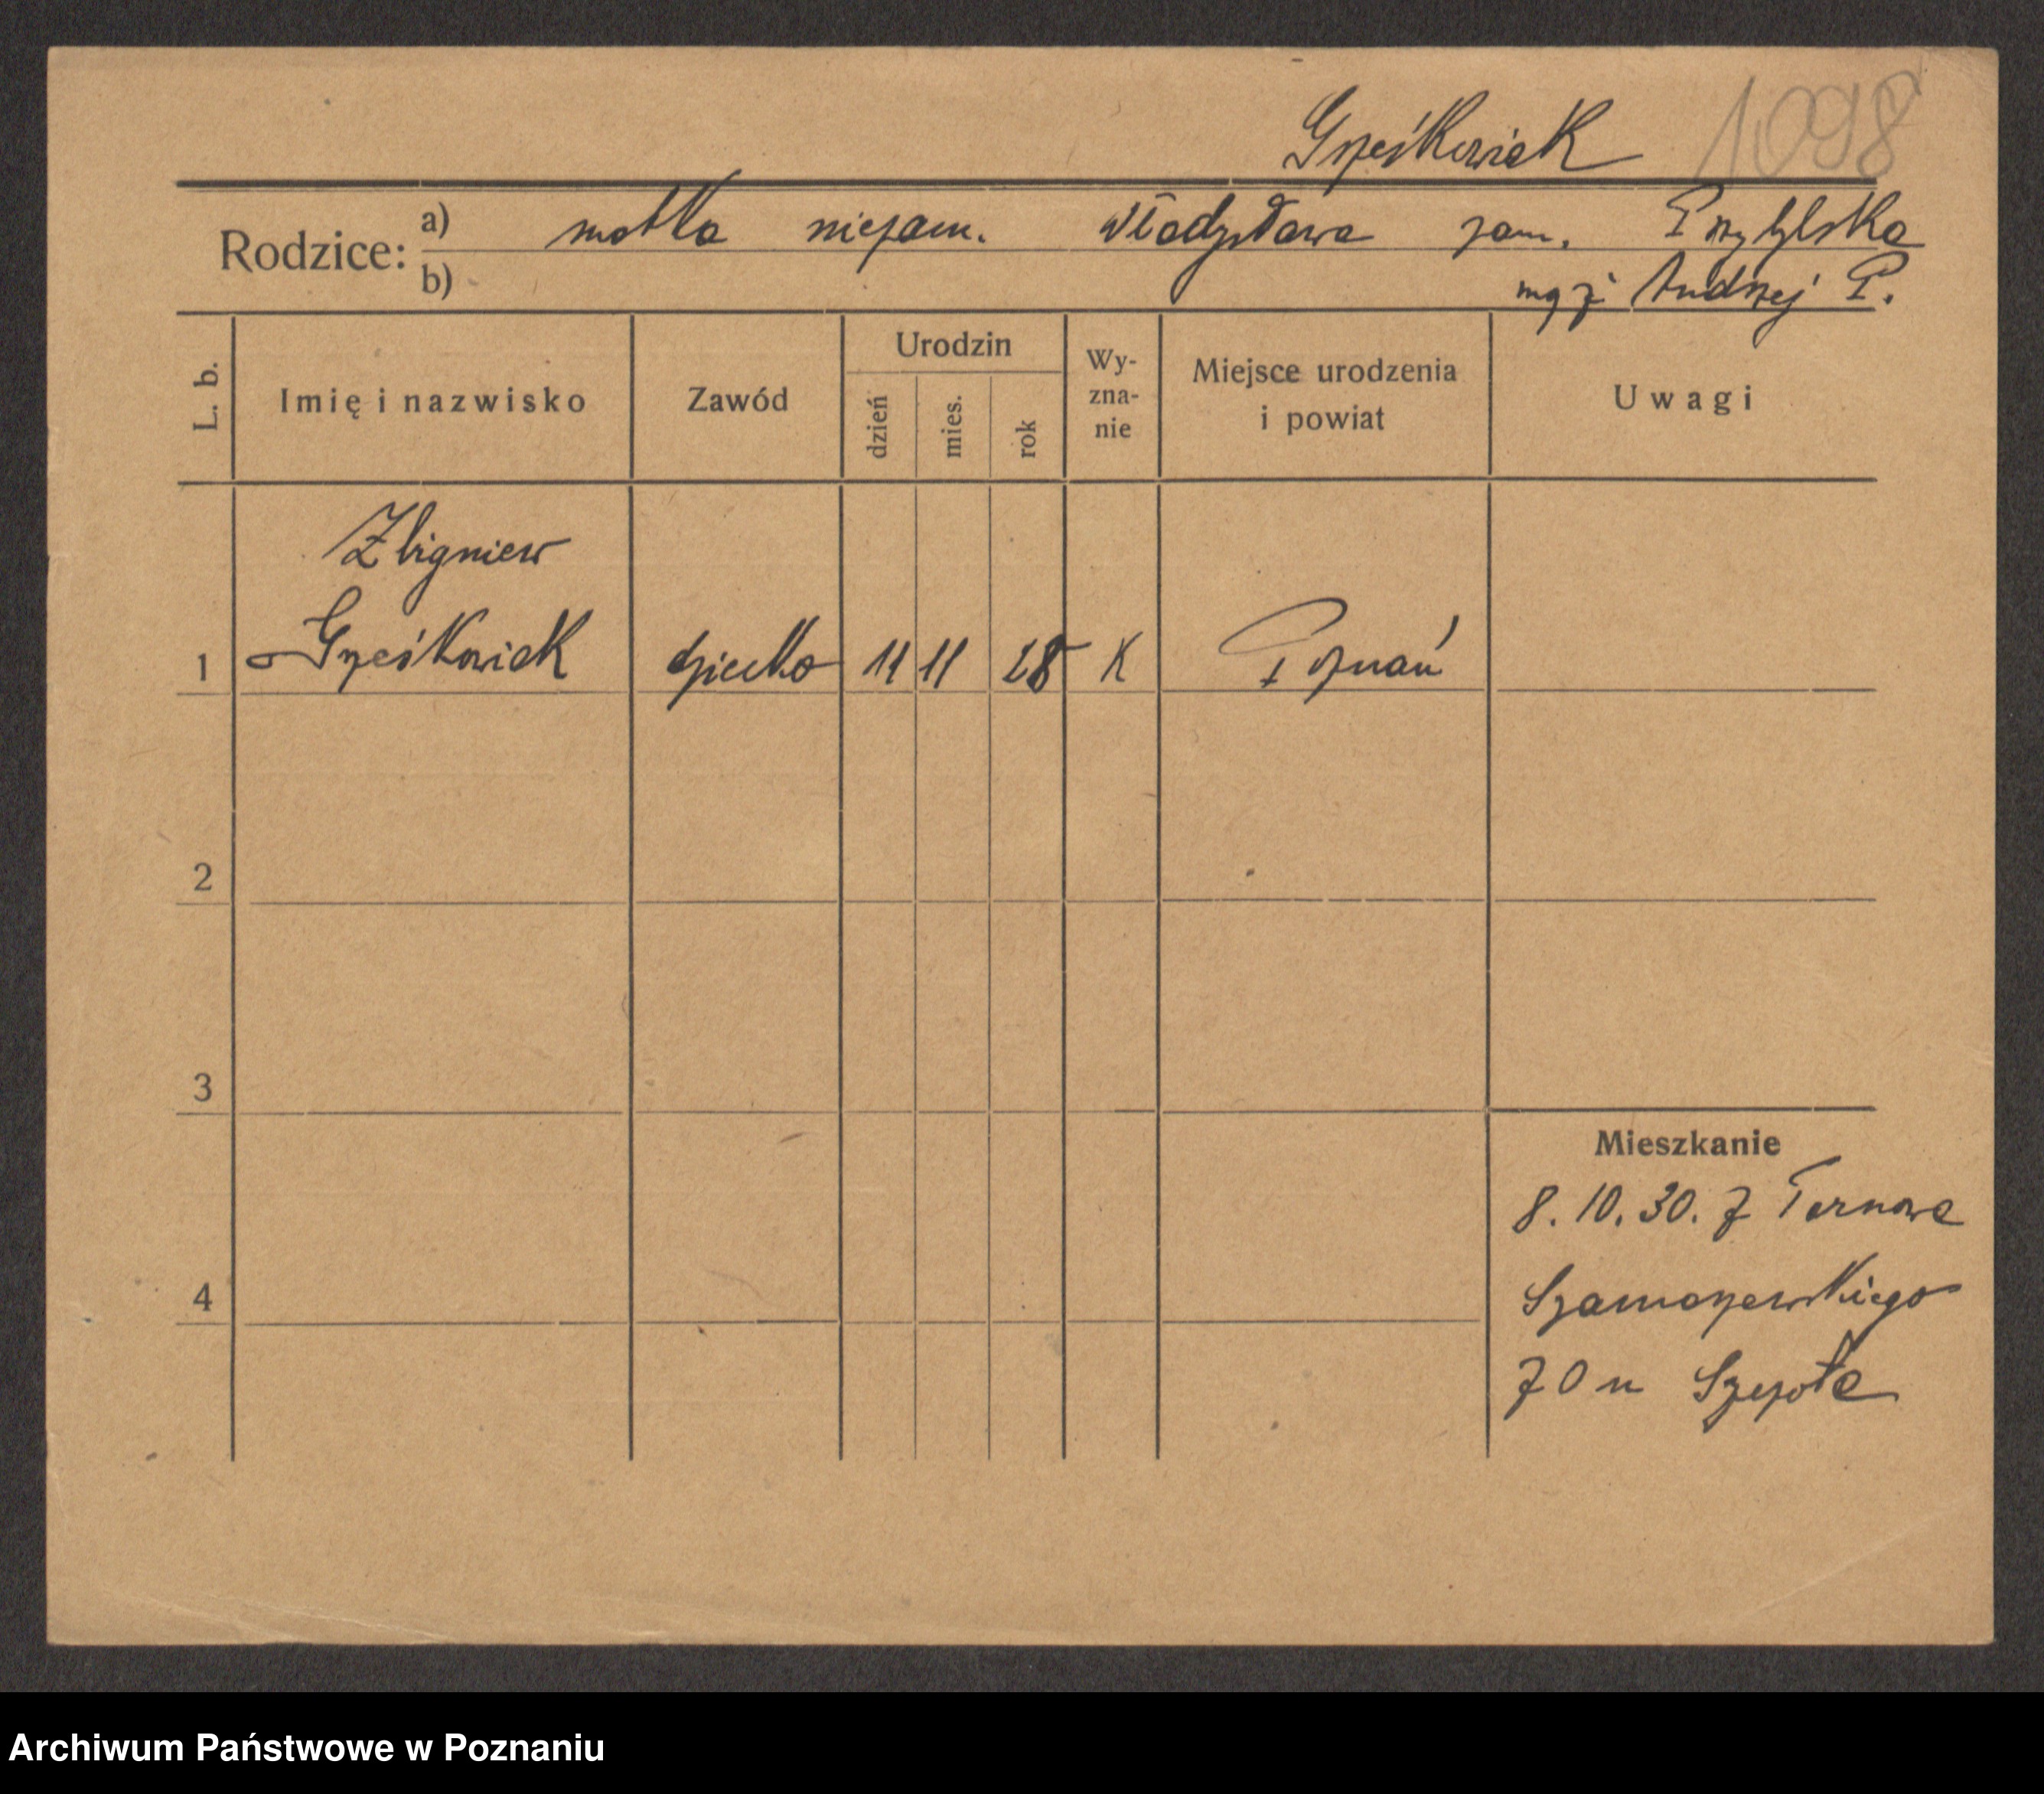 Grześkowiak 1098
Rodzice: a) matka niezam. Władysława zam. Przybylska
b) mąż Andrzej P.
L. b. Imię i nazwisko Zawód Urodzin dzień mies. rok Wy-zna-nie Miejsce urodzenia i powiat Uwagi
Zbigniew
1 Grześkowiak dziecko 11 11 28 K Poznań
2
3
Mieszkanie
8. 10. 30. z Tarnowa
Szamarzewskiego
4
70 u
Archiwum Państwowe w Poznaniu